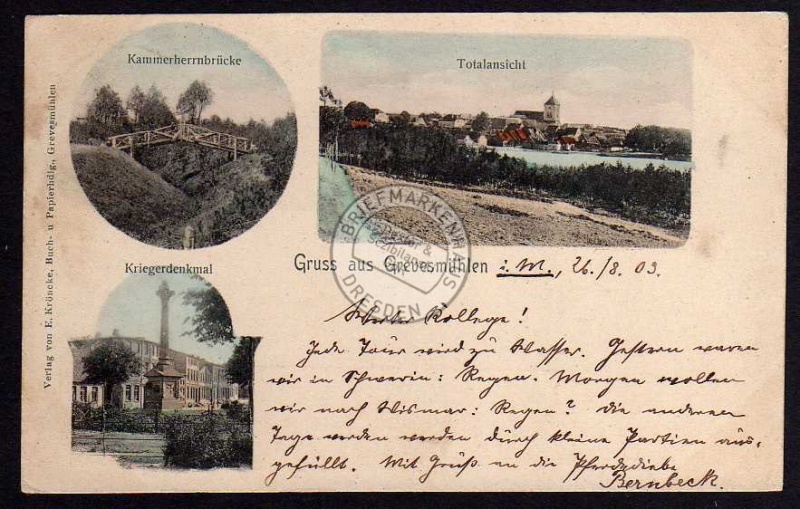 Kammerherrnbrücke
Totalansicht
Kriegerdenkmal
Verlag von E. Kröncke, Buch- u Papierhdlg., Grevesmühlen
BRIEFMARKENHAUS
Bester &
Sedbilanos
DRESDEN
Gruss aus Grevesmühlen i. M., 26./8. 03.
Werter Kollege!
Jede Tour wird zu Wasser. Gestern waren
wir in Schwerin: Regen. Morgen wollen
wir nach Wismar: Regen? Die anderen
Tage werden werden durch kleine Partien aus-
gefüllt. Mit Gruß an die Pferdediebe
Bernbeck.